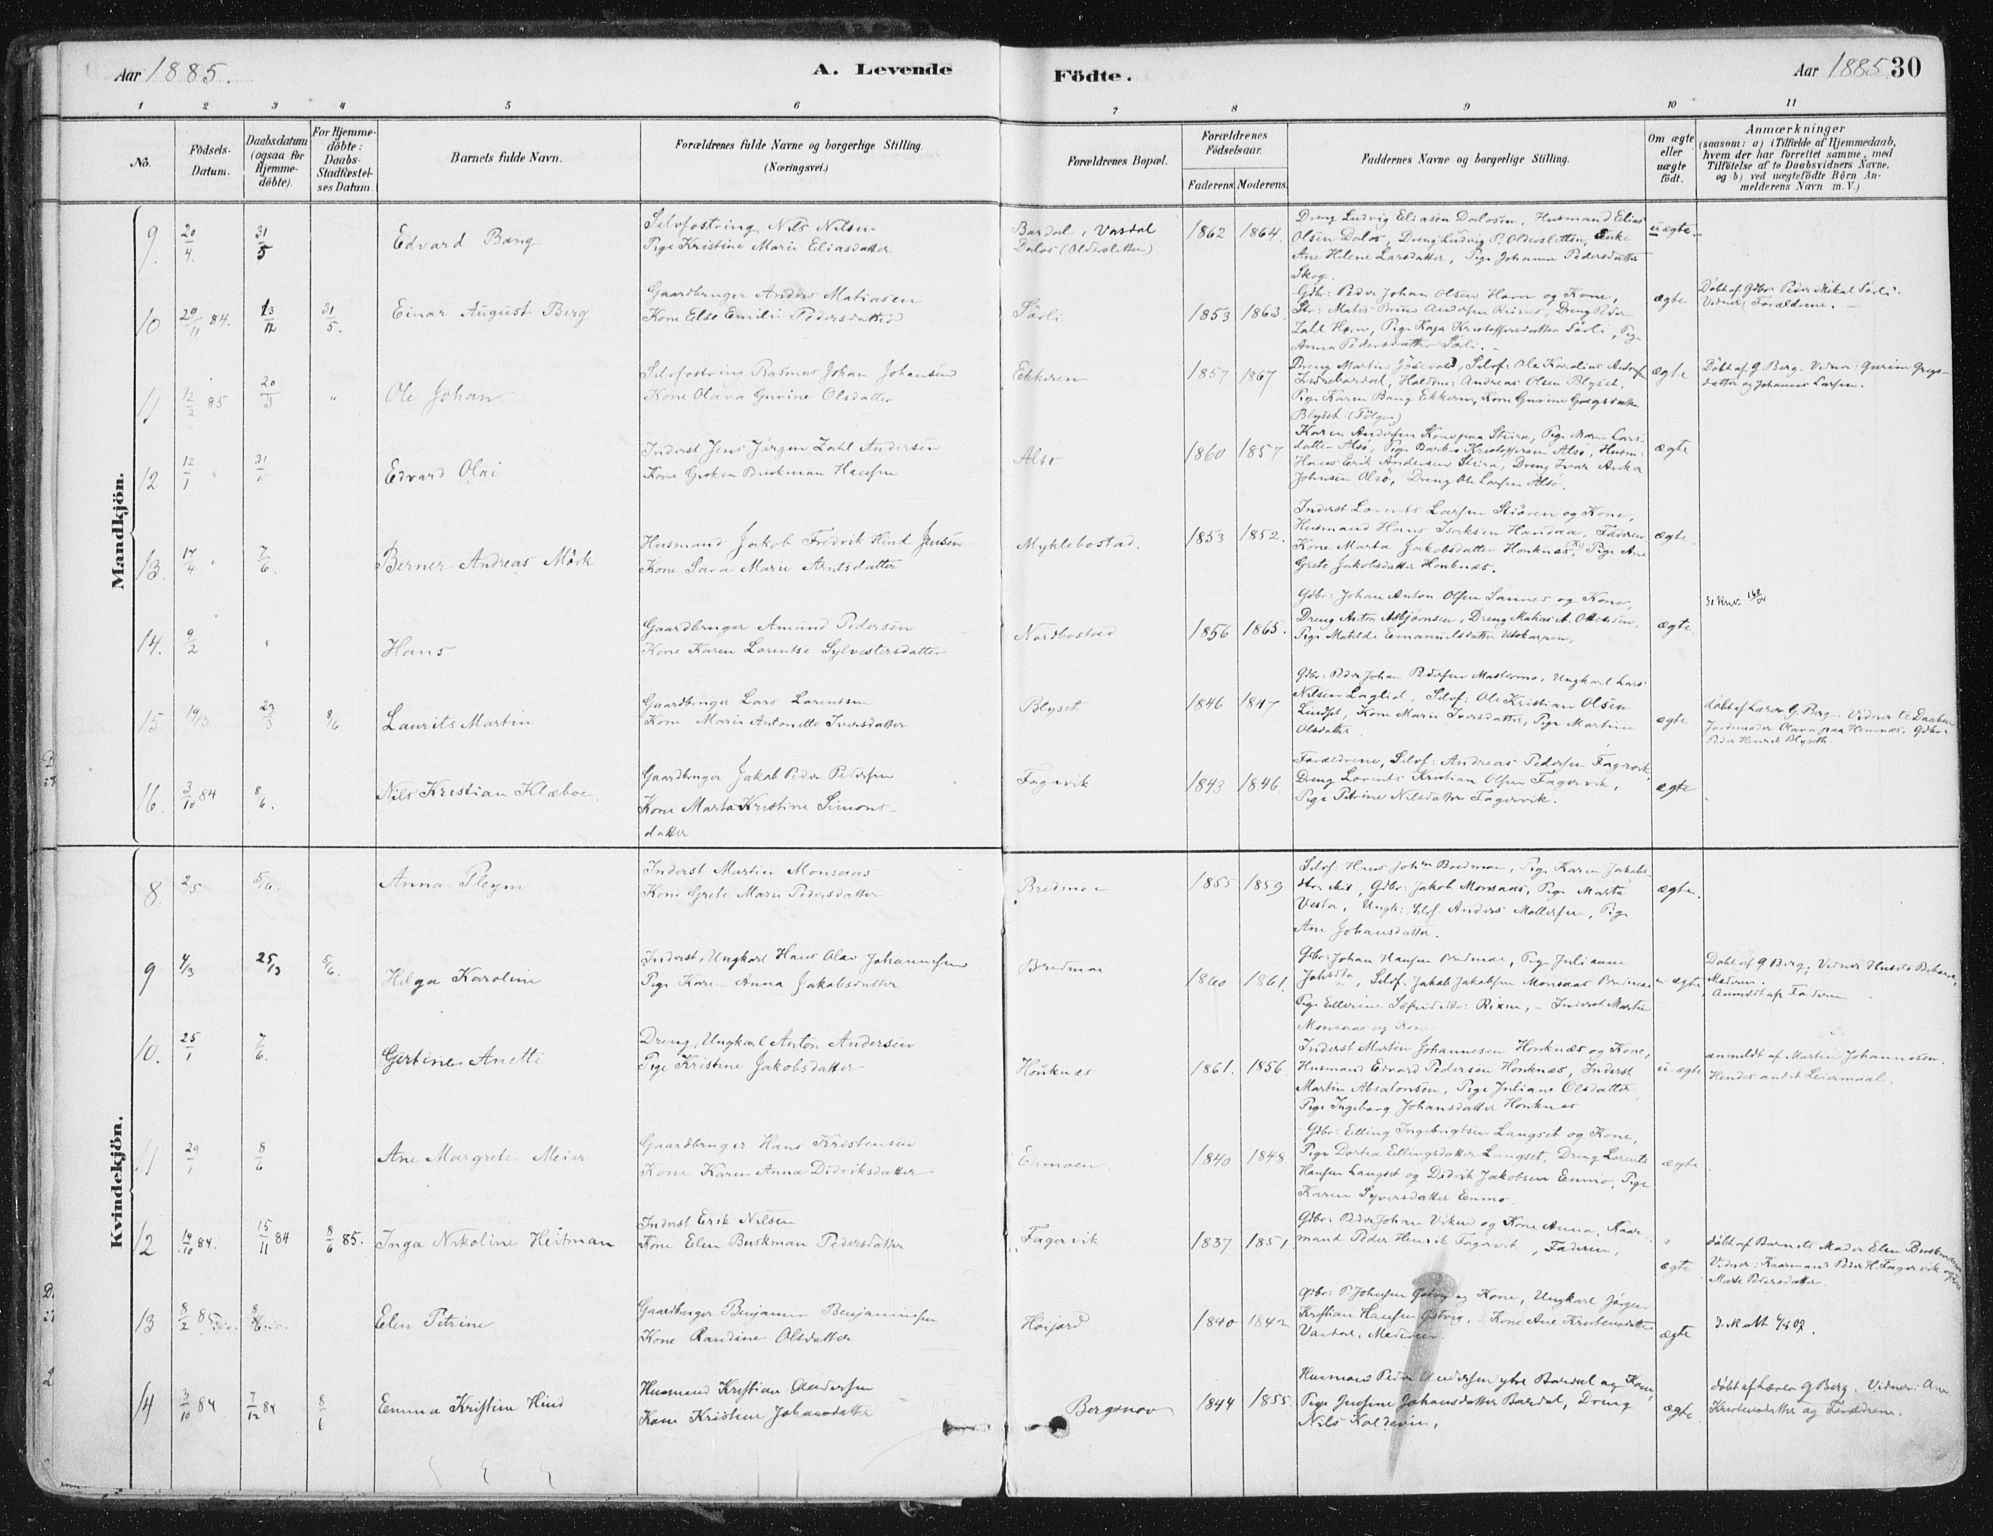 Aar 1885.
A. Levende
Födte.
Aar 1885 30
1 2 3 4 5 6 7 8 9 10 11
No.
Födsels-
Datum.
Daabsdatum
(ogsaa for
Hjemme-
döbte).
For Hjemme-
döbte:
Daabs-
Stadfæstel-
ses Datum.
Barnets fulde Navn.
Forældrenes fulde Navne og borgerlige Stilling.
(Næringsvei.)
Forældrenes Bopæl.
Forældrenes
Födselsaar.
Faderens Moderens
Faddernes Navne og borgerlige Stilling.
Om ægte
eller
uægte
födt.
Anmærkninger
(saasom: a) i Tilfælde af Hjemmedaab,
hvem der har forrettet samme, med
Tilföielse af to Daabsvidners Navne,
og b) ved uægtefödte Börn An-
melderens Navn m. V.)
Mandkjön.
9. 20/4 31/5
Edvard Bang
Selvfostring Nils Nilsen
Pige Kristine Marie Eliasdatter
Bardal, Vasdal
Dalos (Oldersletten)
1862 1864.
Dreng Ludvig Eliasen Dalosen, Husmand Elias
Olsen Dalos, Dreng Ludvig P. Oldersletten, Enke
Ane Helene Larsdatter, Pige Johanna Pedersdatter
Skog.
uægte
10 29/11 84. 13/12 31/5.
Einar August Berg
Gaardbruger Anders Matiasen
Kone Else Emilie Pedersdatter
Sörli
1853 1863.
Gdbr: Peder Johan Olsen Horn og Kone,
Zahl Horn, Pige Kaja Kristoffersdatter Sörli, Pig
Anna Pedersdatter Sörli.
ægte
Döbt af Gdbr Peder Mikal Sörli.
Vidner: Forældrene.
11 12/2 85 20/3 "
Ole Johan
Selvfostring Rasmus Johan Johansen
Kone Olava Gurine Olsdatter
Ekkeren
1857 1867
Indrebardal, Holdm: Andreas Olsen Blyset,
Pige Karen Bang Ekkeren, Kone Gurine
Blyset (Fölger)
ægte
Döbt af G. Berg. Vidner: Gurine Gregs-
datter og Johannes Larsen.
12 12/1 " 31/5
Edvard Olai
Inderst Jens Jörgen Zahl Andersen
Kone Buskman Hansen
Alsö
1860 1857
Karen Andersen Kone paa Stiira, Pige Maren Lars-
datter Alsö, Pige Kristoffersen Alsö, Husm:
Hans Erik Andersen Stiira, Dreng Ivar Anker
Johnsen Olsö, Dreng Ole Larsen Alsö.
ægte
13. 17/4 " 7/6.
Berner Andreas Mörk
Husmand Jakob Fredrik Hind Jensen
Kone Sara Marie Arntsdatter
Myklebostad.
1853 1852.
Inderst Lorents Larsen Stiören og Kone,
Husmand Hans Isaksen Handaa, Faderen,
Kone Marta Jakobsdatter Honknæs, Pige Ane
Grete Jakobsdatter Honknæs.
ægte
14. 9/2 "
Hans
Gaardbruger Amund Pedersen
Kone Karen Lorentse Sylvestersdatter
Nordbostad
1856 1865.
Gdbr: Johan Anton Olsen Sannes og Kone,
Dreng Anton Asbjörnsen, Dreng Matias A. Ottesen,
Pige Matilde Emanuelsdatter Utskarpen,
ægte
15 19/3 23/3 8/6
Laurits Martin
Gaardbruger Lars Larentsen
Kone Marie Antonette Iversdatter
Blyset
1846 1847
Gdbr: Peder Johan Pedersen Mastermo, Ungkarl Lars
Nilsen Laglid, Selvf: Ole Kristian Olsen
Lindset, Kone Marie Iversdatter, Pige Martine
Olsdatter
ægte
döbt af Lærer G. Berg. Vidner til Daaben
Jordemoder Olava paa Hemnæs. Gdbr:
Peder Henrik Blyseth.
16. 3/10 84 8/6.
Nils Kristian Klæboe.
Gaardbruger Jakob Peder Pedersen
Kone Marta Kristine Simons-
datter
Fagervik
1843 1846.
Forældrene, Selvf: Andreas Pedersen Fagervik,
Dreng Lorents Kristian Olsen Fagervik,
Pige Petrine Nilsdatter Fagervik.
ægte
Kvindekjön.
8 2/5 5/6.
Anna Pleym
Inderst Martin Monsaas
Kone Grete Marie Pedersdatter
Bredmoen
1855 1859
Selvf. Hans Bredmoen, Pige Karen Jakobs-
Gdbr: Jakob Monsaas, Pige Marta
Ungk: Selvf: Anders Möllersen, Pige
Ane Johansdatter.
ægte
9 4/3 25/3 5/6.
Helga Karoline
Inderst, Ungkarl Hans Olav Johannesen
Pige Karen Anna Jakobsdatter
Bredmoen
1860 1861.
Gdbr: Johan Hansen Bredmoen, Pige Julianne
Selvf. Jakob Jakobsen Monsaas Bredmoen
Pige Ellerine Inderst Martin
Monsaas og Kone
uægte
Döbt af G Berg. Vidner
Moderen.
Anmeldt af Faderen
10. 25/1 7/6.
Gertine Anette
Dreng, Ungkarl Anton Andersen
Pige Kristine Jakobsdatter
Honknæs
1861. 1856
Inderst Martin Johannesen Honknæs og Kone,
Husmand Edvard Pedersen Honknæs, Inderst
Martin Absalonsen, Pige Juliane Olsdatter,
Pige Ingeborg Johansdatter Honknæs
uægte
anmeldt af Martin Johannesen.
Hendes andet Leiermaal.
11 29/1 8/6
Ane Margrete Meier
Gaardbruger Hans Kristensen
Kone Karen Anna Didriksdatter
Enmoen.
1840 1848
Gdbr: Elling Ingebrigtsen Langset og Kone,
Pige Dortea Ellingsdatter Langset, Dreng Lorents
Hansen Langset og Didrik Jakobsen Enmo, Pige
Karen Syversdatter Enmo.
ægte
12 14/10 84. 15/11 84 8/6 85.
Inga Nikoline Heitman
Inderst Erik Nilsen
Kone Elen Buskman Pedersdatter
Fagervik
1837 1851.
Gdbr: Peder Johan og Kone Anna, Kaar
mand Peder Henrik Fagervik, Faderen,
ægte
döbt af Barnets Moder Elen Buskman
Vidner: Kaarmand Peder H. Fagervik og
Pedersdatter.
13 8/2 85 8/6
Elen Petrine
Gaardbruger Benjamin Benjaminsen
Kone Randine Olsdatter
Höijord
1840 1842
Gdbr: P. Johnsen og Kone, Ungkarl Jörgen
Kristian Hansen Kone Ane Kristensdatter
Moderen.
ægte
14 3/10 84. 7/12 84 8/1
Emma Kristine Hind
Husmand Kristian Andersen
Kone Kristine Johansdatter
Bergsnov
1844 1855.
Husmand Peder Andersen ytre Bardal og Kone,
Pige Jensine Johansdatter Bardal, Dreng
Nils Koldevin,
ægte
döbt af Lærer G Berg. Vidner: Ane
Kristensdatter og Forældrene.